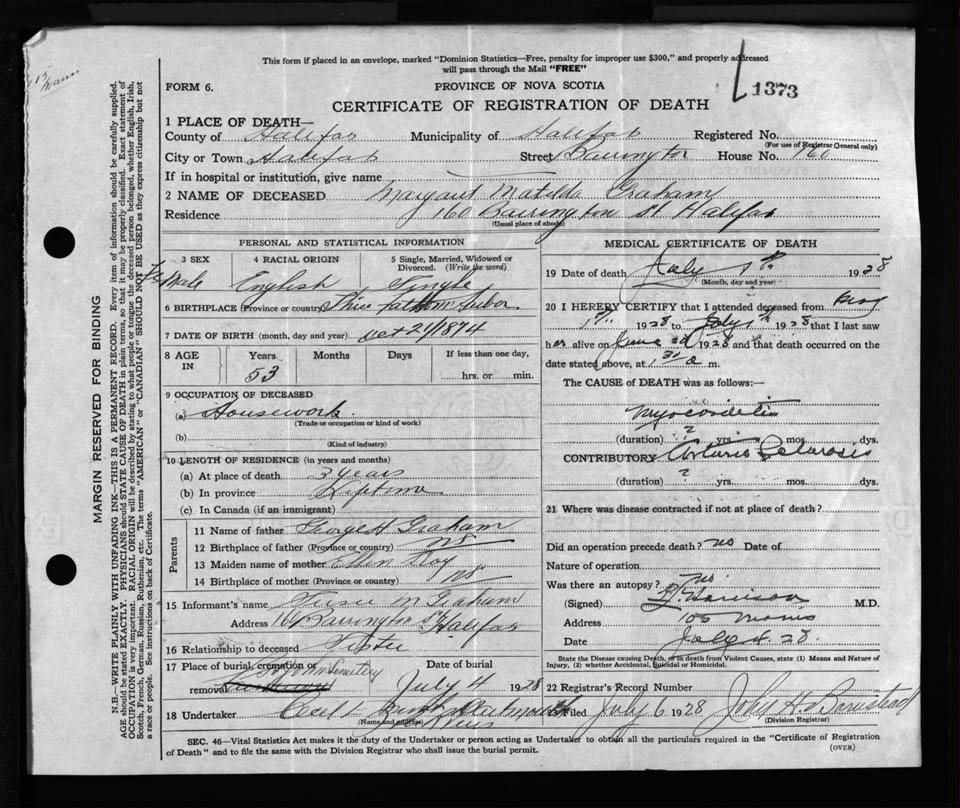 This form if placed in an envelope, marked "Dominion Statistics—Free, penalty for improper use $300," and properly addressed
will pass through the Mail "FREE"
FORM 6.
PROVINCE OF NOVA SCOTIA
1373
CERTIFICATE OF REGISTRATION OF DEATH
1 PLACE OF DEATH—
County of Halifax Municipality of Halifax Registered No.
(For use of Registrar General only)
City or Town Halifax Street Barrington House No. 160
If in hospital or institution, give name
2 NAME OF DECEASED Margaret Matilda Graham
Residence 160 Barrington St Halifax
(Usual place of abode)
PERSONAL AND STATISTICAL INFORMATION
3 SEX 4 RACIAL ORIGIN 5 Single, Married, Widowed or Divorced. (Write the word)
Female English Single
6 BIRTHPLACE (Province or country) Three Fathom Harbor
7 DATE OF BIRTH (month, day and year) Oct 21/1874
8 AGE IN Years Months Days If less than one day,
53 hrs. or min.
9 OCCUPATION OF DECEASED
(a) Housework
(Trade or occupation or kind of work)
(b)
(Kind of industry)
10 LENGTH OF RESIDENCE (in years and months)
(a) At place of death 3 years
(b) In province Lifetime
(c) In Canada (if an immigrant)
Parents
11 Name of father George H Graham
12 Birthplace of father (Province or country) NS
13 Maiden name of mother Ellen
14 Birthplace of mother (Province or country) NS
15 Informant's name M Graham
Address 160 Barrington St Halifax
16 Relationship to deceased Sister
17 Place of burial, cremation or removal Cemetery
Date of burial July 4 1928
18 Undertaker Dartmouth
(Name and address)
MEDICAL CERTIFICATE OF DEATH
19 Date of death July 1st 1928
(Month, day and year)
20 I HEREBY CERTIFY that I attended deceased from
1st 1928 to July 1st 1928 that I last saw
her alive on June 1928 and that death occurred on the
date stated above, at a m.
The CAUSE OF DEATH was as follows:—
Myocarditis
(duration) ? yrs. mos. dys.
CONTRIBUTORY Arterio Sclerosis
(duration) ? yrs. mos. dys.
21 Where was disease contracted if not at place of death?
Did an operation precede death? no Date of
Nature of operation
Was there an autopsy? no
(Signed) M.D.
Address 105 Morris
Date July 4. 28.
State the Disease causing Death, or in death from Violent Causes, state (1) Means and Nature of
Injury, (2) whether Accidental, Suicidal or Homicidal.
22 Registrar's Record Number
Filed July 6 1928 John H. Barnstead
(Division Registrar)
SEC. 46—Vital Statistics Act makes it the duty of the Undertaker or person acting as Undertaker to obtain all the particulars required in the "Certificate of Registration
of Death" and to file the same with the Division Registrar who shall issue the burial permit.
(OVER)
MARGIN RESERVED FOR BINDING
N.B.—WRITE PLAINLY WITH UNFADING INK—THIS IS A PERMANENT RECORD. Every item of information should be carefully supplied.
AGE should be stated EXACTLY. PHYSICIANS should STATE CAUSE OF DEATH in plain terms, so that it may be properly classified. Exact statement of
OCCUPATION is very important. RACIAL ORIGIN will be described by stating to what people or tongue the deceased person belonged, whether English, Irish,
Scotch, French, German, Russian, Ruthenian, etc. The terms "AMERICAN" or "CANADIAN" SHOULD NOT BE USED as they express citizenship but not
a race or people. See instructions on back of Certificate.